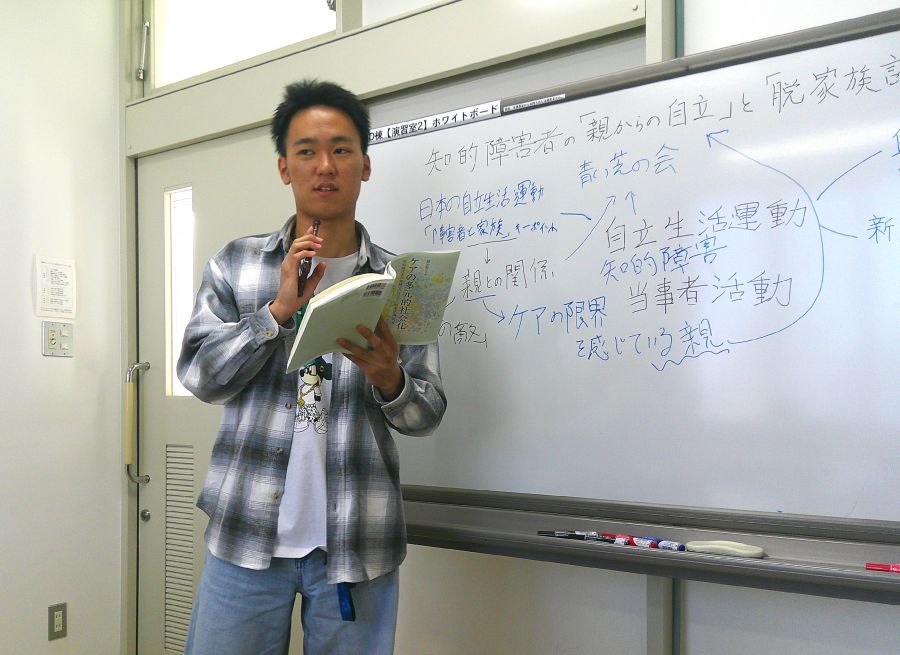 D棟【演習室2】ホワイトボード
知的障害者の「親からの自立」と「脱家族
青い芝の会
日本の自立生活運動
「障害者と家族」キーポイント
自立生活運動
知的障害
親との関係
当事者活動
の敵」
ケアの限界
を感じている親
新
ケアの多元的社会化